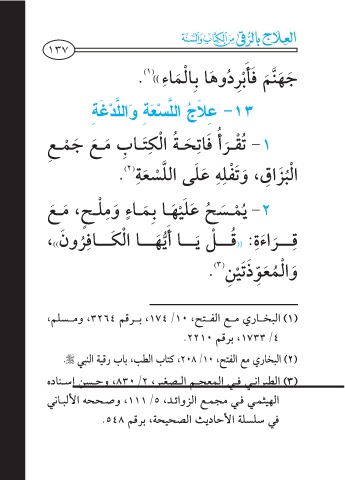 العلاج بالرقى من الكتاب والسنة
١٣٧
جَهَنَّمَ فَأَبْرِدُوهَا بِالْمَاءِ»(١).
١٣- عِلاَجُ اللَّسْعَةِ وَاللَّدْغَةِ
١- تُقْرَأُ فَاتِحَةُ الْكِتَابِ مَعَ جَمْعِ
الْبُزَاقِ، وَتَفْلِهِ عَلَى اللَّسْعَةِ(٢).
٢- يُمْسَحُ عَلَيْهَا بِمَاءٍ وَمِلْحٍ، مَعَ
قِرَاءَةِ: «قُلْ يَا أَيُّهَا الْكَافِرُونَ»،
وَالْمُعَوِّذَتَيْنِ(٣).
(١) البخاري مع الفتح، ١٠/ ١٧٤، برقم ٣٢٦٤، ومسلم،
٤/ ١٧٣٣، برقم ٢٢١٠.
(٢) البخاري مع الفتح، ١٠/ ٢٠٨، كتاب الطب، باب رقية النبي ﷺ.
(٣) الطبراني في المعجم الصغير، ٢/ ٨٣٠، وحسن إسناده
الهيثمي في مجمع الزوائد، ٥/ ١١١، وصححه الألباني
في سلسلة الأحاديث الصحيحة، برقم ٥٤٨.